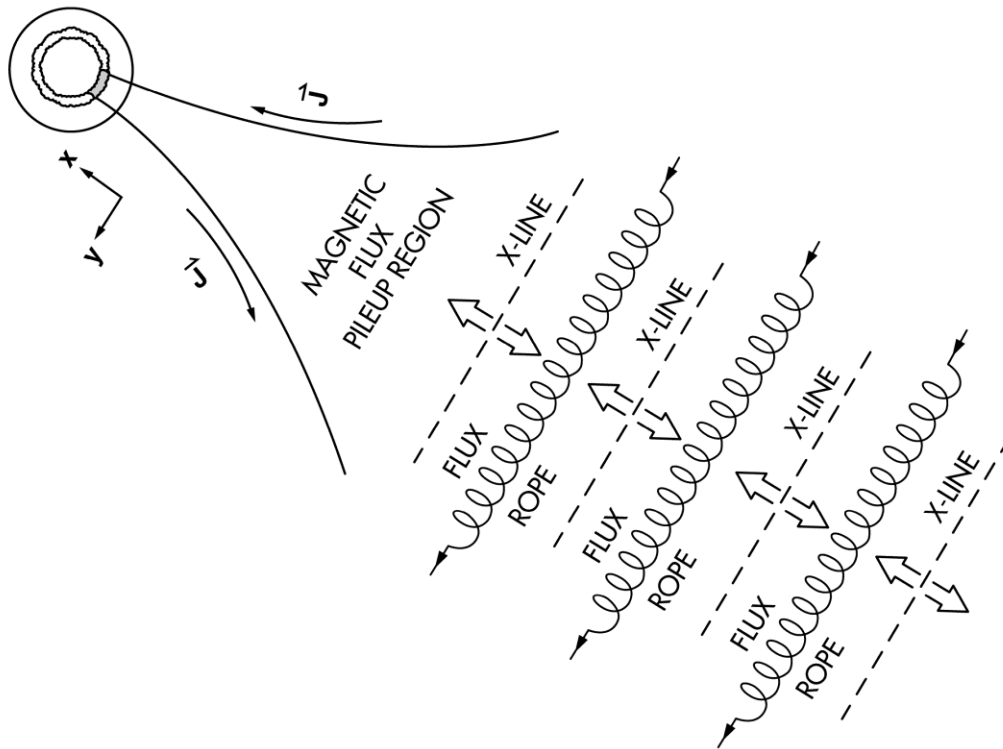 J
x
y
J
MAGNETIC
FLUX
PILEUP REGION
X-LINE
FLUX
ROPE
X-LINE
FLUX
ROPE
X-LINE
FLUX
ROPE
X-LINE